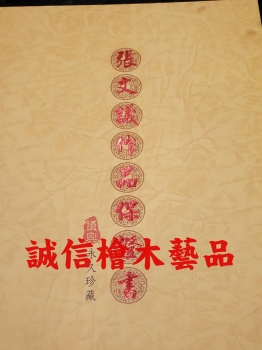 張文議作品保證書
永久珍藏
誠信檜木藝品